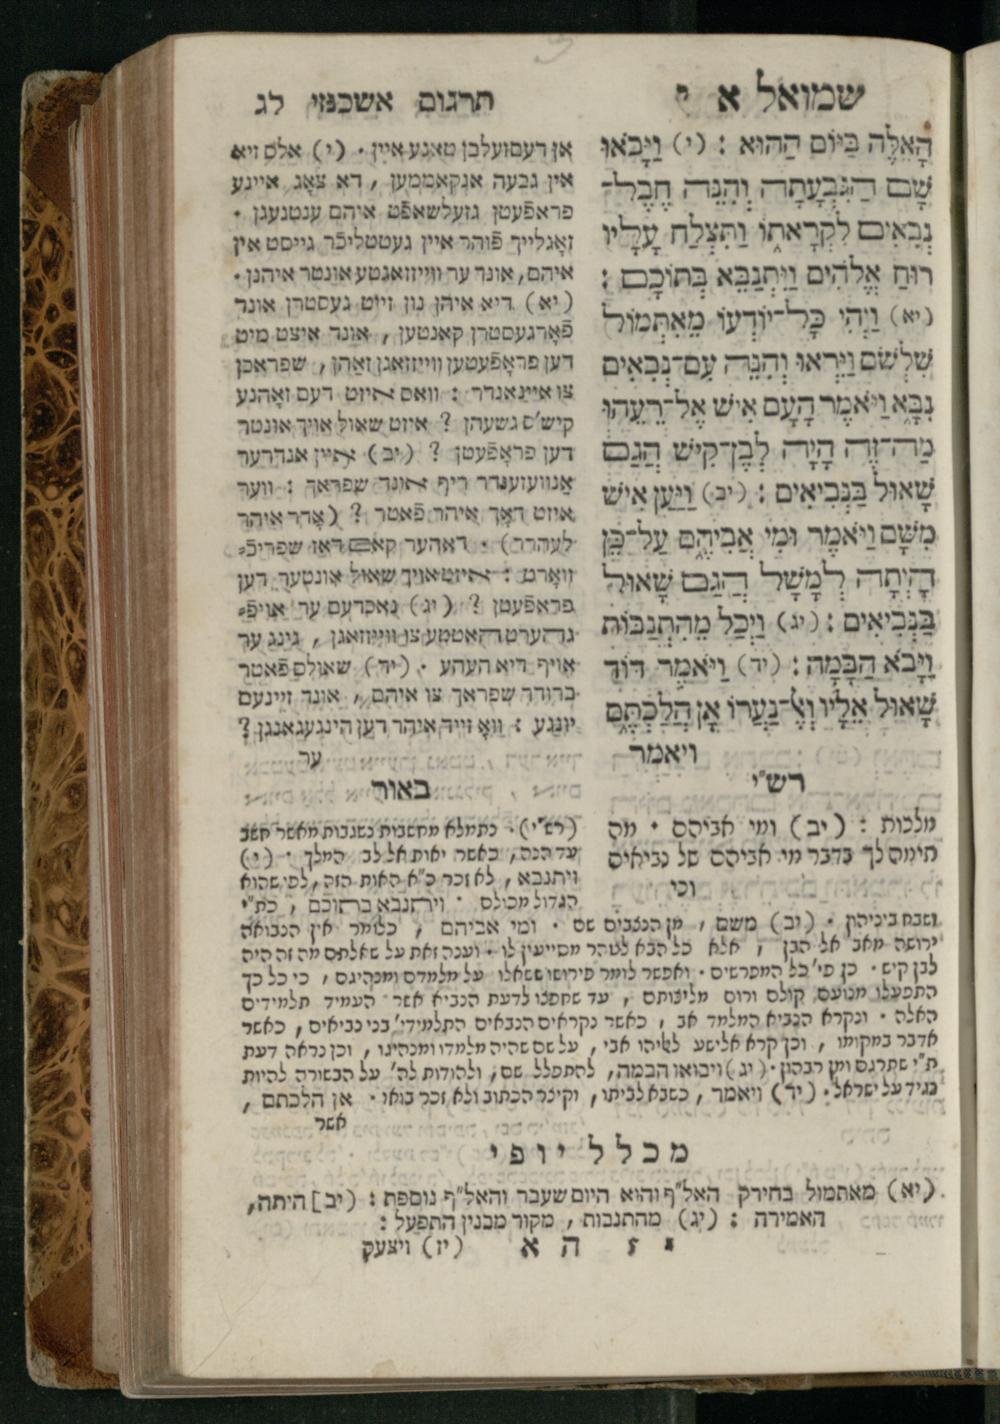 שמואל א י
תרגום אשכנזי לג
הָאֵלֶּה בַּיּוֹם הַהוּא : (י) וַיָּבֹאוּ
שָׁם הַגִּבְעָתָה וְהִנֵּה חֶבֶל־
נְבִאִים לִקְרָאתוֹ וַתִּצְלַח עָלָיו
רוּחַ אֱלֹהִים וַיִּתְנַבֵּא בְּתוֹכָם :
(יא) וַיְהִי כָּל־יוֹדְעוֹ מֵאִתְּמוֹל
שִׁלְשֹׁם וַיִּרְאוּ וְהִנֵּה עִם־נְבִאִים
נִבָּא וַיֹּאמֶר הָעָם אִישׁ אֶל־רֵעֵהוּ
מַה־זֶּה הָיָה לְבֶן־קִישׁ הֲגַם
שָׁאוּל בַּנְּבִיאִים : (יב) וַיַּעַן אִישׁ
מִשָּׁם וַיֹּאמֶר וּמִי אֲבִיהֶם עַל־כֵּן
הָיְתָה לְמָשָׁל הֲגַם שָׁאוּל
בַּנְּבִיאִים : (יג) וַיְכַל מֵהִתְנַבּוֹת
וַיָּבֹא הַבָּמָה : (יד) וַיֹּאמֶר דּוֹד
שָׁאוּל אֵלָיו וְאֶל־נַעֲרוֹ אָן הֲלַכְתֶּם
ויאמר
אן דעמזעלבן טאגע איין . (י) אלס זיא
אין גבעה אנקאממען , דא צאָג איינע
פראפֿעטן געזעלשאפֿט איהם ענטגעגן .
זאָגלייך פֿוהר איין געטטליכֿר גייסט אין
איהם, אונד ער ווייזזאגטע אונטר איהנן .
(יא) דיא איהן נון זייט געסטרן אונד
פֿאָרגעסטרן קאנטען , אונד איצט מיט
דען פראָפֿעטען ווייזזאגן זאהן , שפראכן
צו איינאנדר : וואס איזט דעם זאָהנע
קיש'ס גשעהן ? איזט שאול אויך אונטר
דען פראָפֿעטן ? (יב) איין אנדרער
אַנוועזענדר ריף אונד שפראך : ווער
איזט דאָך איהר פֿאטר ? (אָדר איהר
לעהרר) . דאהער קאם דאז שפריכֿ=
וואָרט : איזט אויך שאול אונטער דען
פראפֿעטן ? (יג) נאכדעם ער אויפֿ=
געהערט האטטע צו ווייזזאגן , גינג ער
אויף דיא העהע . (יד) שאולס פֿאטר
ברודר שפראך צו איהם , אונד זיינעם
יונגע : וואָ זייד איהר דען הינגעגאנגן ?
ער
רש"י
מלכות : (יב) ומי אביהם . מה
תימה לך בדבר מי אביהם של נביאים
וכי
באור
(רש"י). כתמלא מחשבות נשגבות מאשר חשב
עד הנה, כאשר יאות אל לב המלך . (י)
ויתנבא , לא זכר כ"א האות הזה, לפי שהוא
הגדול מכולם . ויתנבא בתוכם , כת"י
ושבח ביניהון . (יב) משם , מן הנצבים שם . ומי אביהם , כלומר אין הנבואה
ירושה מאב אל הבן , אלא כל הבא לטהר מסייעין לו . וענה זאת על שאלתם מה זה היה
לבן קיש . כן פי' כל המפרשים . ואפשר לומר פירושו ששאלו על מלמדם ומנהיגם , כי כל כך
התפעלו מנועם קולם ורום מליצותם , עד שחפצו לדעת הנביא אשר העמיד תלמידים
האלה . ונקרא הנביא המלמד אב , כאשר נקראים הנבאים התלמידי' בני נביאים , כאשר
אדבר במקומו , וכן קרא אלישע לאליהו אבי , על שם שהיה מלמדו ומנהיגו , וכן נראה דעת
ת"י שתרגם ומן רבהון . (יג) ויבואו הבמה, להתפלל שם, ולהודות לה' על הבשורה להיות
נגיד על ישראל . (יד) ויאמר , כשבא לביתו , וקיצר הכתוב ולא זכר בואו . אן הלכתם ,
אשר
מכלל יופי
(יא) מאתמול בחירק האל"ף והוא היום שעבר והאל"ף נוספת : (יב] היתה,
האמירה : (יג) מהתנבות , מקור מבנין התפעל :
י ז ה א
(יז) ויצעק